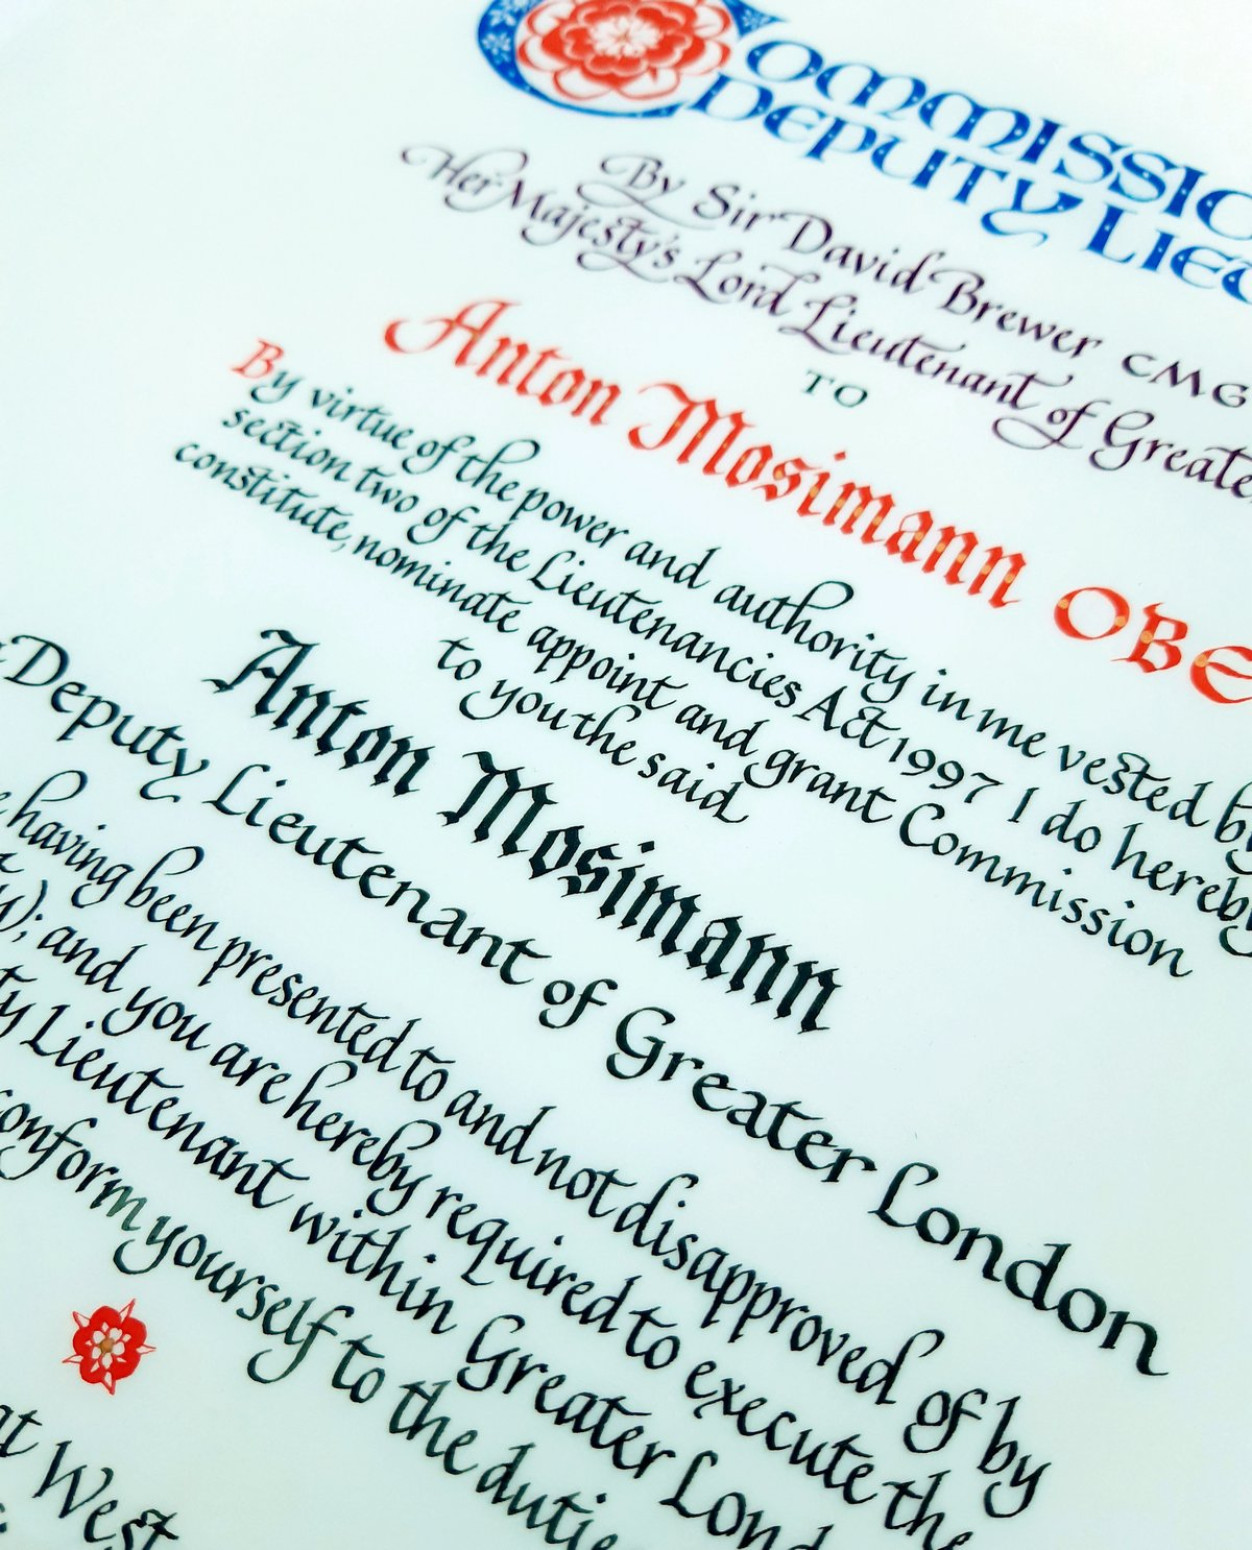 COMMISSIO
DEPUTY LIEU
By Sir David Brewer CMG
Her Majesty's Lord Lieutenant of Greate
TO
Anton Mosimann OBE
By virtue of the power and authority in me vested by
section two of the Lieutenancies Act 1997 I do hereby
constitute, nominate appoint and grant Commission
to you the said
Anton Mosimann
Deputy Lieutenant of Greater London
having been presented to and not disapproved of by
); and you are hereby required to execute the
ty Lieutenant within Greater Lond
conform yourself to the dutie
at West